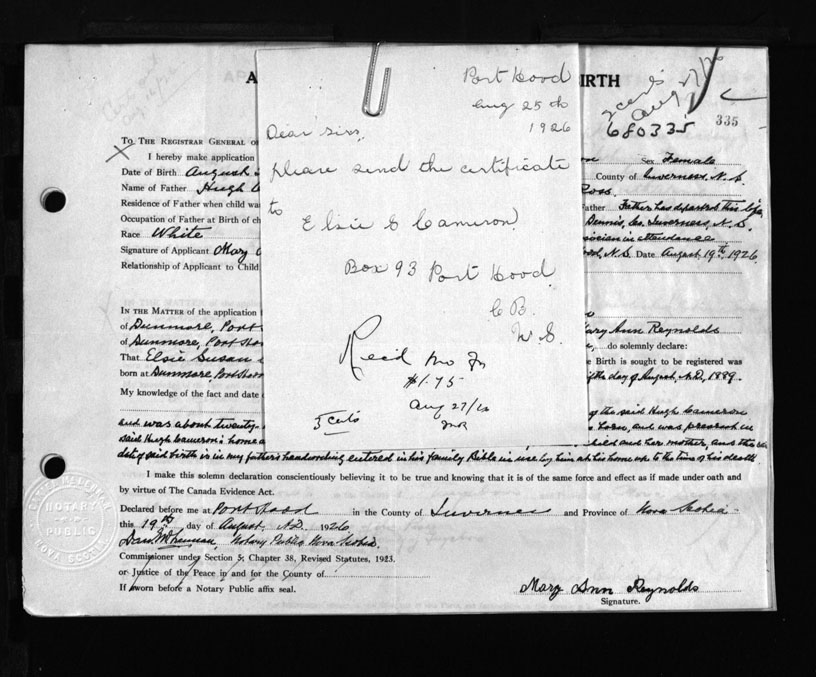 A
BIRTH
335
680335
Port Hood
Aug 25th
1926
Dear Sirs,
please send the certificate
to
Elsie G Cameron
Box 93 Port Hood
C B.
N. S.
Recd
$1.75
Aug 27/26
To The Registrar General of
I hereby make application
Sex Female
Date of Birth August
County of Inverness, N. S.
Name of Father Hugh
Ross.
Residence of Father when child wa
Father Father has departed this life,
Occupation of Father at Birth of ch
Dennis, Co. Inverness, N. S.
Race White
physician in attendance
Signature of Applicant Mary
N. S. Date August 19th, 1926
Relationship of Applicant to Child
In the Matter of the application
of Dunmore, Port
Mary Ann Reynolds
of Dunmore, Port Hood
do solemnly declare:
That Elsie Susan
Birth is sought to be registered was
born at Dunmore Port Hood
the day of August, A.D., 1889.
My knowledge of the fact and date
the said Hugh Cameron
and was about twenty-
born, and was present in
said Hugh Cameron's home
child and her mother, and the
date of said birth is in my father's handwriting entered in his family Bible in use by him at his home up to the time of his death.
I make this solemn declaration conscientiously believing it to be true and knowing that it is of the same force and effect as if made under oath and
by virtue of The Canada Evidence Act.
Declared before me at Port Hood in the County of Inverness and Province of Nova Scotia
this 19th day of August, A.D. 1926
Notary Public Nova Scotia.
Commissioner under Section 5, Chapter 38, Revised Statutes, 1923.
or Justice of the Peace in and for the County of
If sworn before a Notary Public affix seal.
Mary Ann Reynolds
Signature.
NOTARY
PUBLIC
NOVA SCOTIA